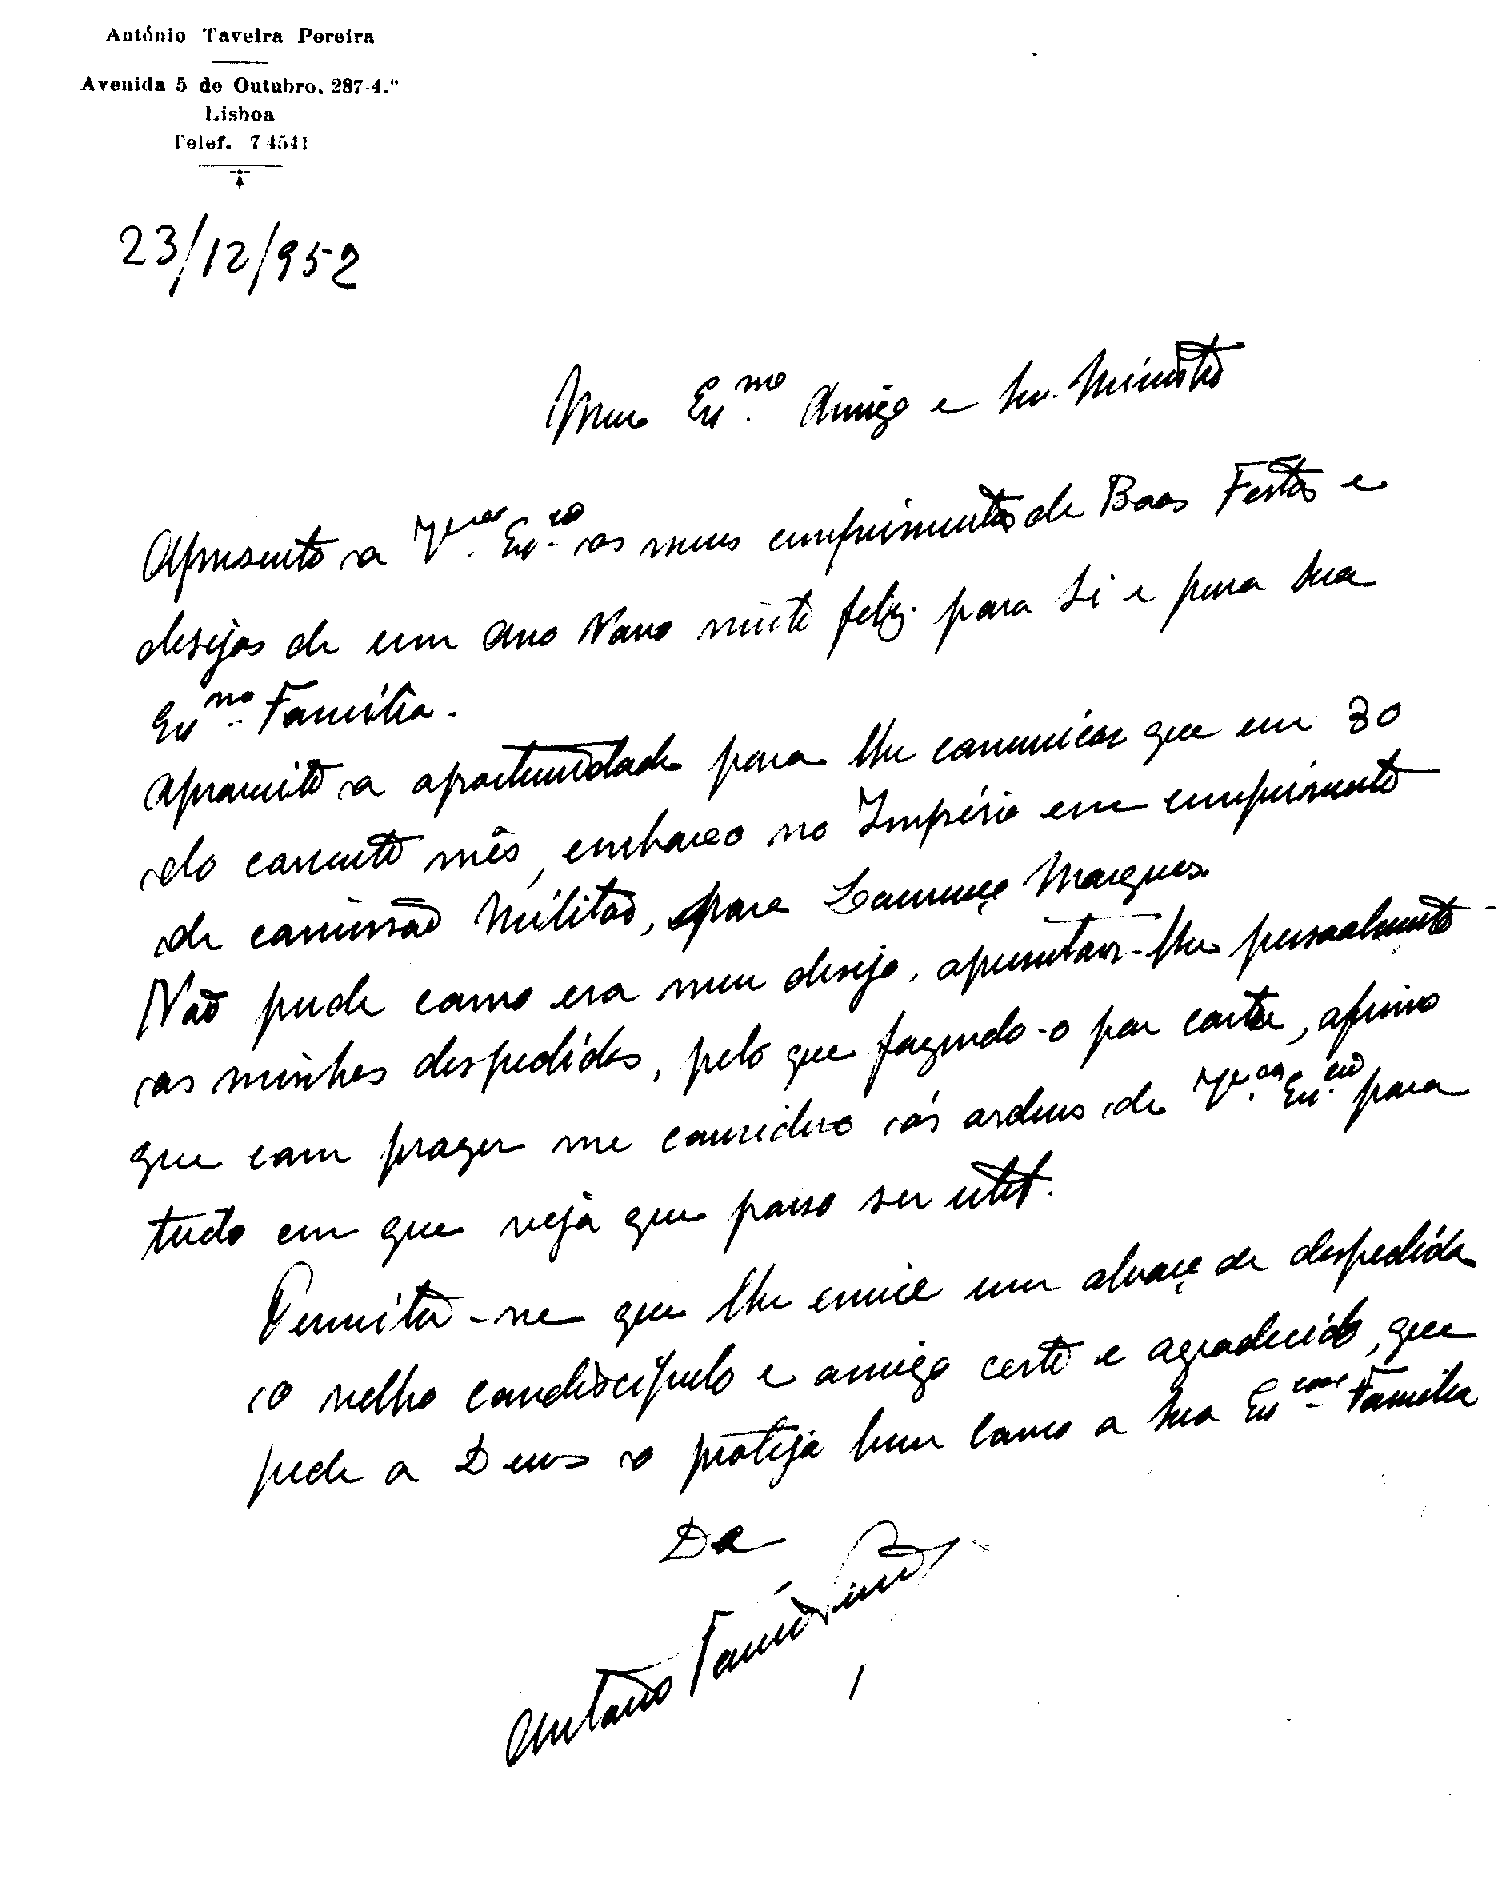 António Taveira Pereira
Avenida 5 de Outubro, 287-4.º
Lisboa
Telef. 74541
23/12/952
Meu Ex.mo Amigo e Sr. Ministro
Apresento a V. Ex.cia os meus cumprimentos de Boas Festas e
desejos de um Ano Novo muito feliz para Si e para Sua
Ex.ma Família.
Aproveito a oportunidade para lhe comunicar que em 30
do corrente mês, embarco no Império em cumprimento
de comissão Militar, para Lourenço Marques
Não pude como era meu desejo, apresentar-lhe pessoalmente
as minhas despedidas, pelo que fazendo-o por carta, afirmo
que com prazer me considero ás ordens de V. Ex.cia para
tudo em que veja que posso ser util.
Permita-me que lhe envie um abraço de despedida
o velho condiscípulo e amigo certo e agradecido, que
pede a Deus o proteja bem como a Sua Ex.ma Família
De
António Taveira Pereira